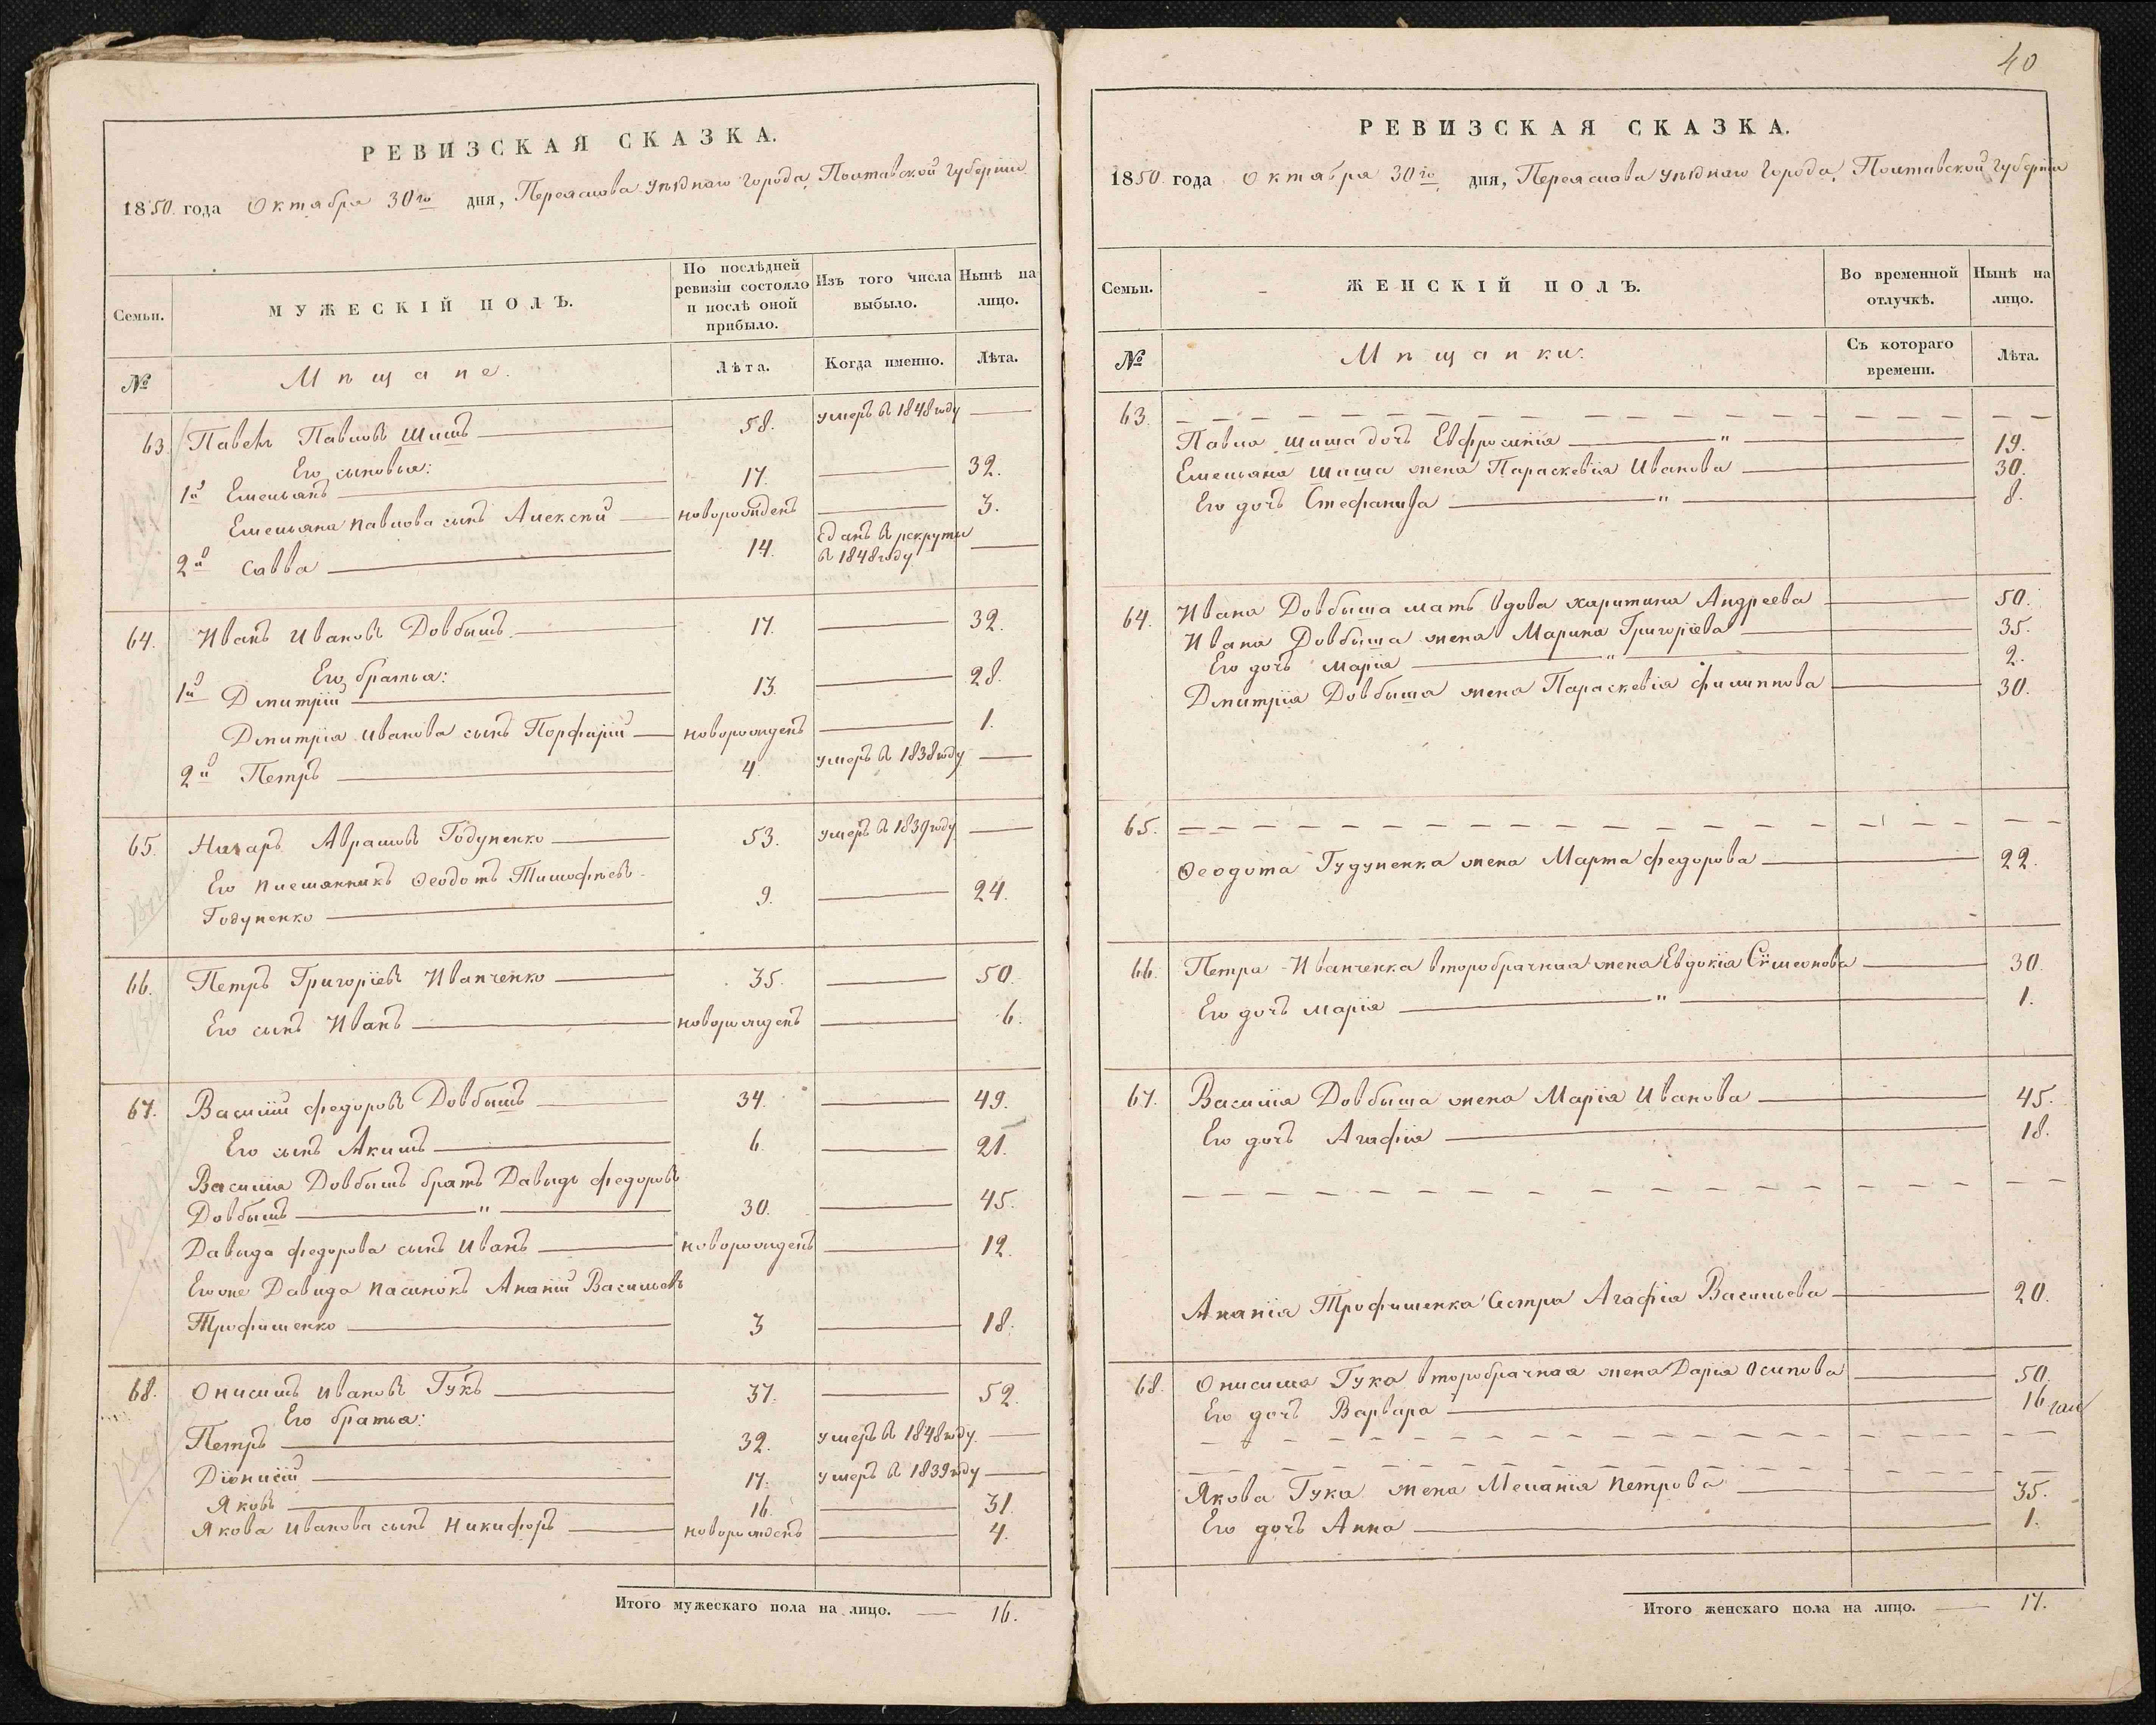 РЕВИЗСКАЯ СКАЗКА.
1850. года Октября 30го дня, Переяслова уѣзднаго города, Полтавской губерніи
Семьи.
МУЖЕСКІЙ ПОЛЪ.
По послѣдней ревизіи состояло и послѣ оной прибыло.
Изъ того числа выбыло.
Нынѣ на лицо.
№
Мѣщане.
Лѣта.
Когда именно.
Лѣта.
63. Павелъ Павловъ Шишъ 58. умеръ въ 1848 году
Его сыновья:
1й Емельянъ 17. 32.
Емельяна Павлова сынъ Алексѣй новорожденъ 3.
2й Савва 14. Сданъ въ рекруты въ 1848 году
64. Иванъ Ивановъ Довбышъ. 17. 32.
Его братья:
1й Дмитрій 13. 28.
Дмитрія Иванова сынъ Порфирій новорожденъ 1.
2й Петръ 4. умеръ въ 1838 году
65. Авраамовъ Годуненко 53. умеръ въ 1839 году
Его племянникъ Ѳеодотъ Тимофѣевъ
Годуненко 9. 24.
66. Петръ Григоріевъ Иванченко 35. 50.
Его сынъ Иванъ новорожденъ 6.
67. Василій Федоровъ Довбышъ 34. 49.
Его сынъ Акимъ 6. 21.
Василія Довбышъ братъ Давыдъ Федоровъ
Довбышъ " 30. 45.
Давыда Федорова сынъ Иванъ новорожденъ 12.
Егоже Давида пасынокъ Ананій Васильевъ
Трофименко 3 18.
68. Онисимъ Ивановъ Гукъ 37. 52.
Его братья:
Петръ 32. умеръ въ 1848 году.
Діонисій 17. умеръ въ 1839 году
Яковъ 16. 31.
Якова Иванова сынъ Никифоръ новорожденъ 4.
Итого мужескаго пола на лицо. 16.
40
РЕВИЗСКАЯ СКАЗКА.
1850. года Октября 30го дня, Переяслова уѣзднаго города, Полтавской губерніи
Семьи.
ЖЕНСКІЙ ПОЛЪ.
Во временной отлучкѣ.
Нынѣ на лицо.
№
Мѣщанки.
Съ котораго времени.
Лѣта.
63.
Павла Шиша дочь Евфросинія " 19.
Емельяна Шиша жена Параскевія Иванова 30.
Его дочь Стефанида " 8.
64. Ивана Довбыша мать вдова Харитина Андреева 50.
Ивана Довбыша жена Марина Григоріева 35.
Его дочь Марія " 2.
Дмитрія Довбыша жена Параскевія Филиппова 30.
65.
Ѳеодота Гудуненка жена Марта Федорова 22.
66. Петра Иванченка второбрачная жена Евдокія Сѵмеонова 30.
Его дочь Марія " 1.
67. Василія Довбыша жена Марія Иванова 45.
Его дочь Агафія 18.
Ананія Трофименка Сестра Агафія Васильева 20.
68. Онисима Гука второбрачная жена Дарія Осипова 50.
Его дочь Варвара 16
Якова Гука жена Меланія Петрова 35.
Его дочь Анна 1.
Итого женскаго пола на лицо. 17.